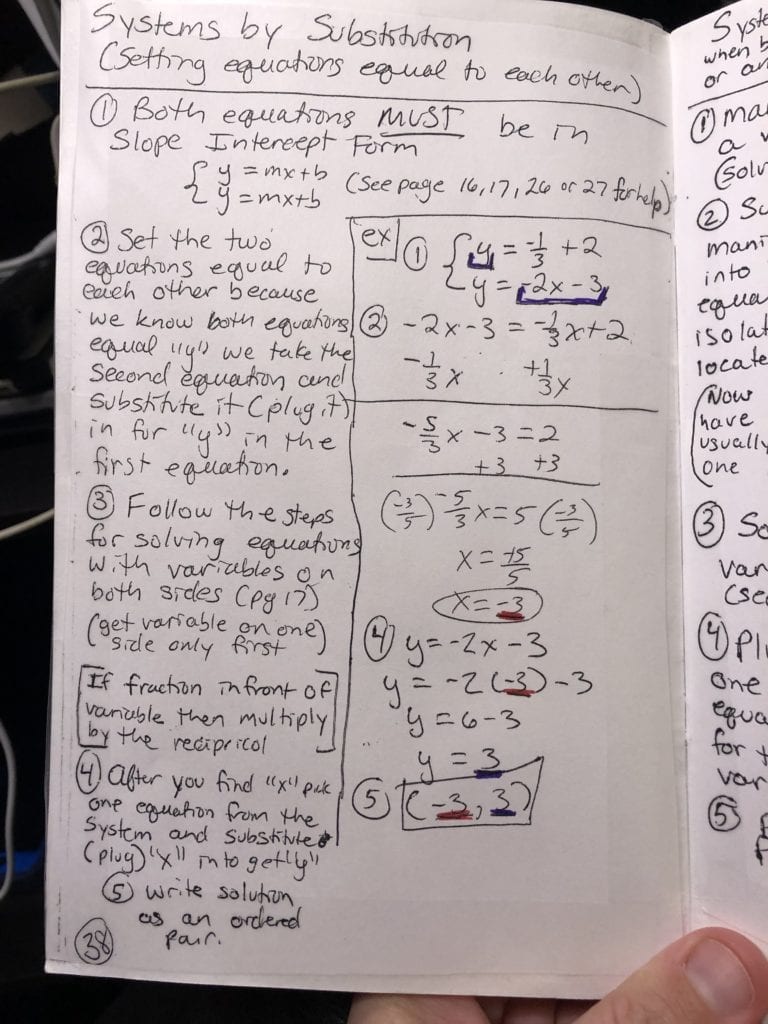 Systems by Substitution
(Setting equations equal to each other)
① Both equations MUST be in
Slope Intercept Form
{ y = mx+b
{ y = mx+b
(See page 16, 17, 26 or 27 for help)
② Set the two
equations equal to
each other because
we know both equations
equal "y" we take the
Second equation and
substitute it (plug it)
in for "y" in the
first equation.
③ Follow the steps
for solving equations
with variables on
both sides (pg 17)
(get variable on one)
side only first
[If fraction in front of
variable then multiply
by the recipricol]
④ After you find "x" pick
one equation from the
System and substitute
(plug) "x" in to get "y"
⑤ write solution
as an ordered
pair.
38
ex ① { y = -1/3 + 2
{ y = -2x - 3
② -2x - 3 = -1/3 x + 2
-1/3 x +1/3 x
-5/3 x - 3 = 2
+3 +3
(-3/5) -5/3 x = 5 (-3/5)
x = -15/5
x = -3
④ y = -2x - 3
y = -2(-3) - 3
y = 6 - 3
y = 3
⑤ (-3, 3)
Syste
when b
or an
① ma
a
(Solv
②
mani
into
equa
isolat
locate
(Now
have
usually
one
③ So
var
(see
④ Plu
one
equa
for t
var
⑤